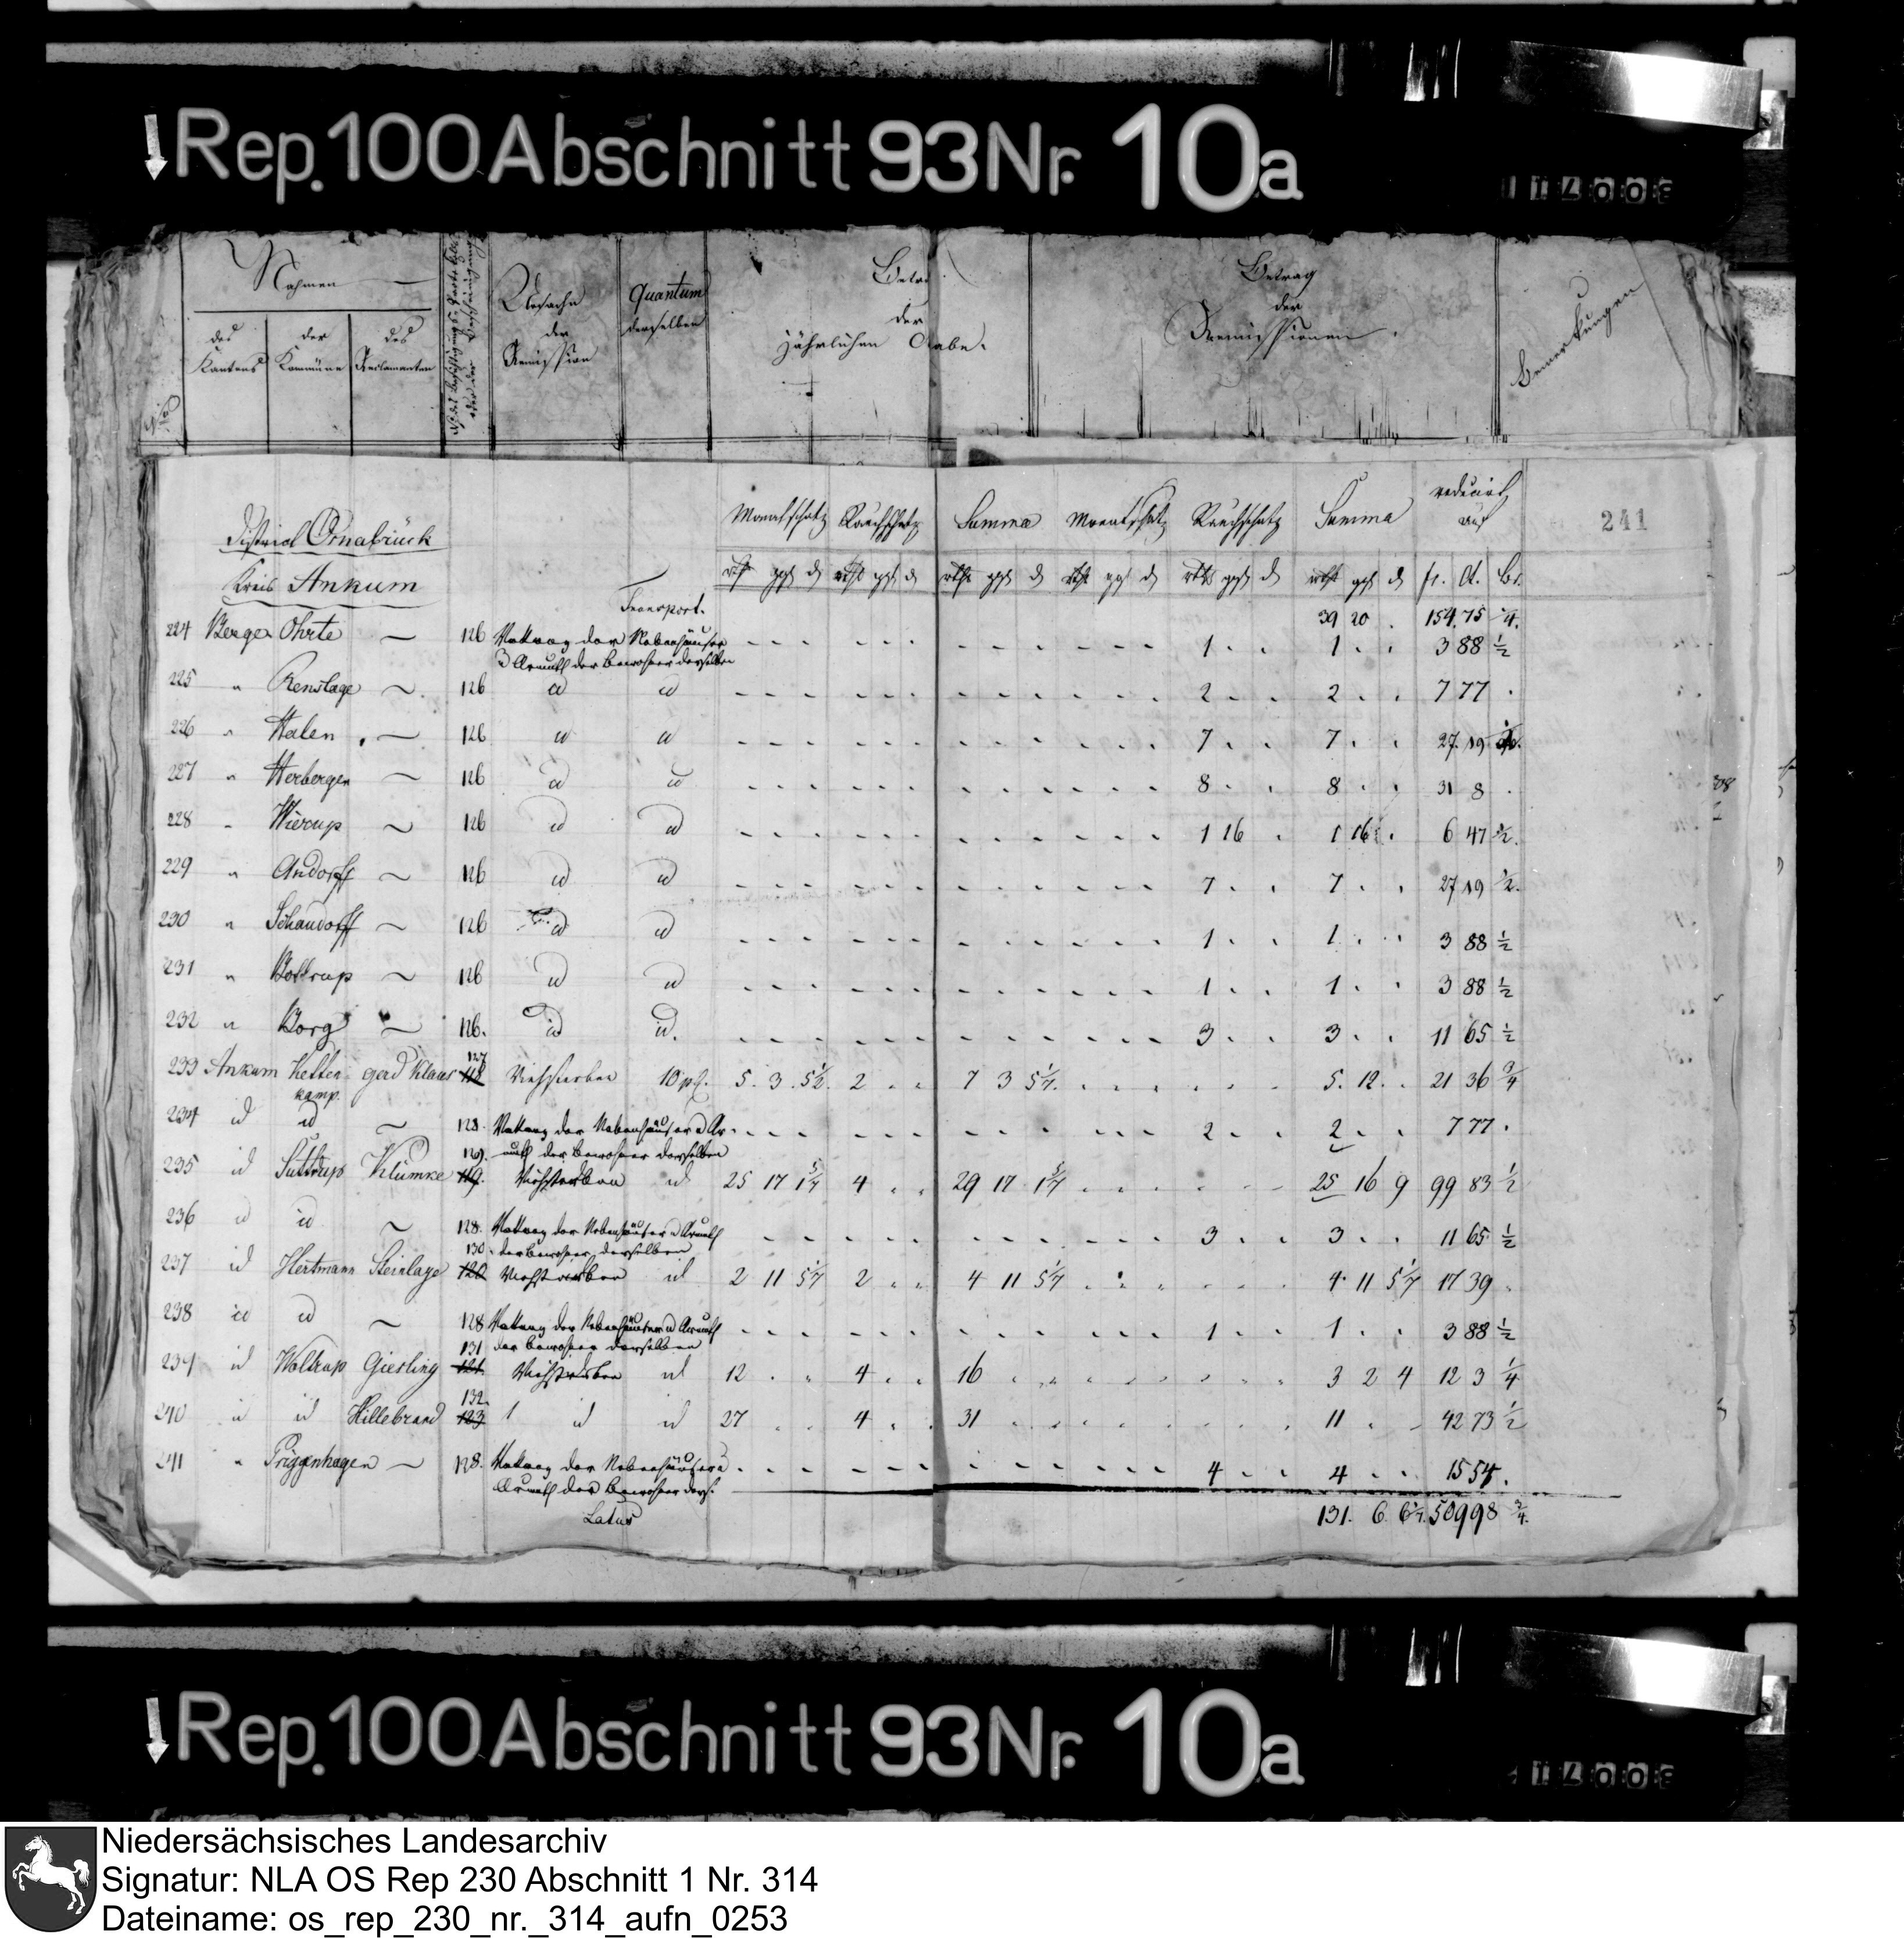 Rep. 100 Abschnitt 93 Nr. 10a
Nahmen
des Kantons
der Kommüne
des Reclamanten
Ursache der Remission
Quantum derselben
Betrag der jährlichen Abgabe.
Betrag der Remissionen.
Bemerkungen
241
District Osnabrück
Kreis Ankum
Monatschatz Rauchschatz Summa Monatschatz Rauchschatz Summa reducirt auf
rthl ggl d rthl ggl d rthl ggl d rthl ggl d rthl ggl d rthl ggl d fr. Ct.
Transport. 39 20 . 154.75 1/4.
224 Berge Ohrte ~ 126 Vakanz der Nebenhäuser 1 . . 1 . . 3 88 1/2
Armuth der Bewohner derselben
225 " Renslage ~ 126 id id 2 . . 2 . . 7 77 .
226 " Halen ~ 126 id id 7 . . 7 . . 27.19
227 " Herbergen ~ 126 id id 8 . . 8 . . 31 8 .
228 " Wierup ~ 126 id id 1 16 . 1 16 . 6 47 1/2.
229 " Andorff ~ 126 id id 7 . . 7 . . 27 19 1/2.
230 " Schandorff ~ 126 id id 1 . . 1 . . 3 88 1/2
231 " Bottrup ~ 126 id id 1 . . 1 . . 3 88 1/2
232 " Borg ~ 126. id id. 3 . . 3 . . 11 65 1/2
127
233 Ankum Ketten- gerd Klaus 118 Viehsterben 5. 3. 5 1/2. 2 . . 7 3 5 1/7. 5. 12. . 21 36 3/4
kamp.
234 id id ~ 128. Vakanz der Nebenhäuser u Ar- 2 . . 2 . . 7 77 .
129. muth der Bewohner derselben
235 id Suttrup Klümke 119. Viehsterben id 25 17 1 5/7 4 . . 29 17 1 5/7 25 16 9 99 83 1/2
236 id id ~ 128. Vakanz der Nebenhäuser u Armuth 3 . . 3 . . 11 65 1/2
130. der Bewohner derselben
237 id Hertmann Steinlage 120 Viehsterben id 2 11 5 1/7 2 . . 4 11 5 1/7 4. 11 5 1/7 17 39 .
238 id id ~ 128 Vakanz der Nebenhäuser u Armuth 1 . . 1 . . 3 88 1/2
131 der Bewohner derselben
239 id Woltrup Giesling 121 Viehsterben id 12 . . 4 . . 16 3 2 4 12 3 1/4
132.
240 id id Hillebrand 123 id id 27 . . 4 . . 31 11 . . 42 73 1/2
241 " Priggenhagen ~ 128. Vakanz der Nebenhäuser u 4 . . 4 . . 15 54.
Armuth der Bewohner ders.
Latus 131. 6. 6 1/7. 509 98 3/4.
Rep. 100 Abschnitt 93 Nr. 10a
Niedersächsisches Landesarchiv
Signatur: NLA OS Rep 230 Abschnitt 1 Nr. 314
Dateiname: os_rep_230_nr._314_aufn_0253